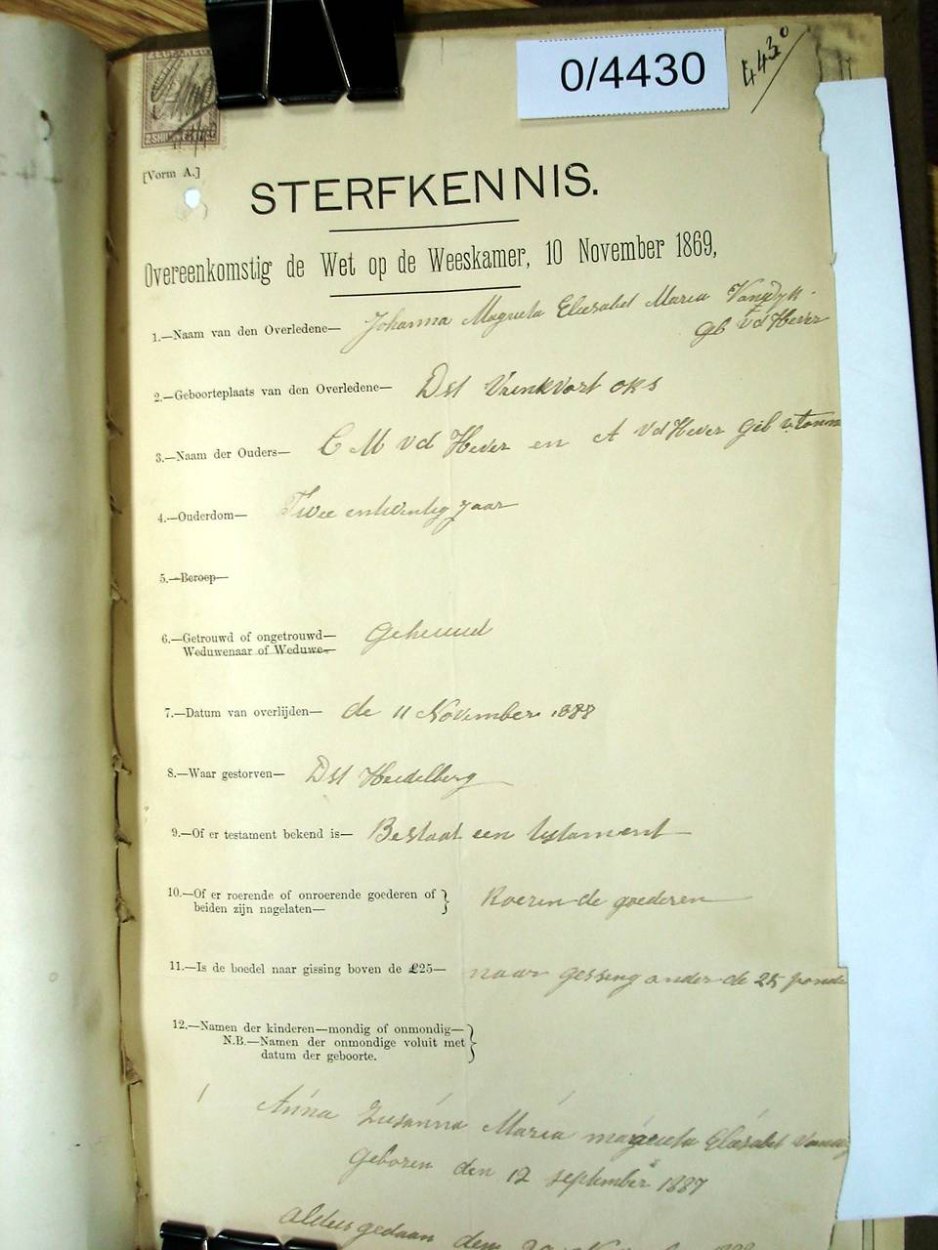 0/4430
4430
2 SHILLINGS
[Vorm A.]
STERFKENNIS.
Overeenkomstig de Wet op de Weeskamer, 10 November 1869,
1.—Naam van den Overledene— Johanna Magrieta Eliesabet Maria Vandyk
geb vd Hever
2.—Geboorteplaats van den Overledene— Dst Vrenkvort OVS
3.—Naam der Ouders— C M vd Hever en A vd Hever geb
4.—Ouderdom— Twee entwintig jaar
5.—Beroep—
6.—Getrouwd of ongetrouwd—
Weduwenaar of Weduwe— Gehuud
7.—Datum van overlijden— de 11 November 1888
8.—Waar gestorven— Dst Heidelberg
9.—Of er testament bekend is— Bestaat een testament
10.—Of er roerende of onroerende goederen of
beiden zijn nagelaten— Roeren de goederen
11.—Is de boedel naar gissing boven de £25— naar gessing onder de 25 ponde
12.—Namen der kinderen—mondig of onmondig—
N.B.—Namen der onmondige voluit met
datum der geboorte.
1 Anna Susanna Maria magrieta Eliesabet
Geboren den 12 september 1887
aldus gedaan den